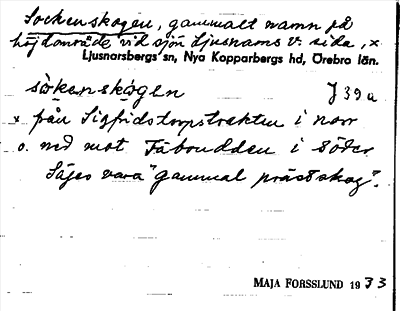 Sockenskogen, gammalt namn på
höjdområde vid sjön Ljusnarns v: sida, x
Ljusnarsbergs sn, Nya Kopparbergs hd, Örebro län.
sòkenskógen J 39 a
x från Sigfridstorpstrakten i norr
o. ned mot Fäboudden i söder
Säges vara "gammal prästskog".
MAJA FORSSLUND 1933